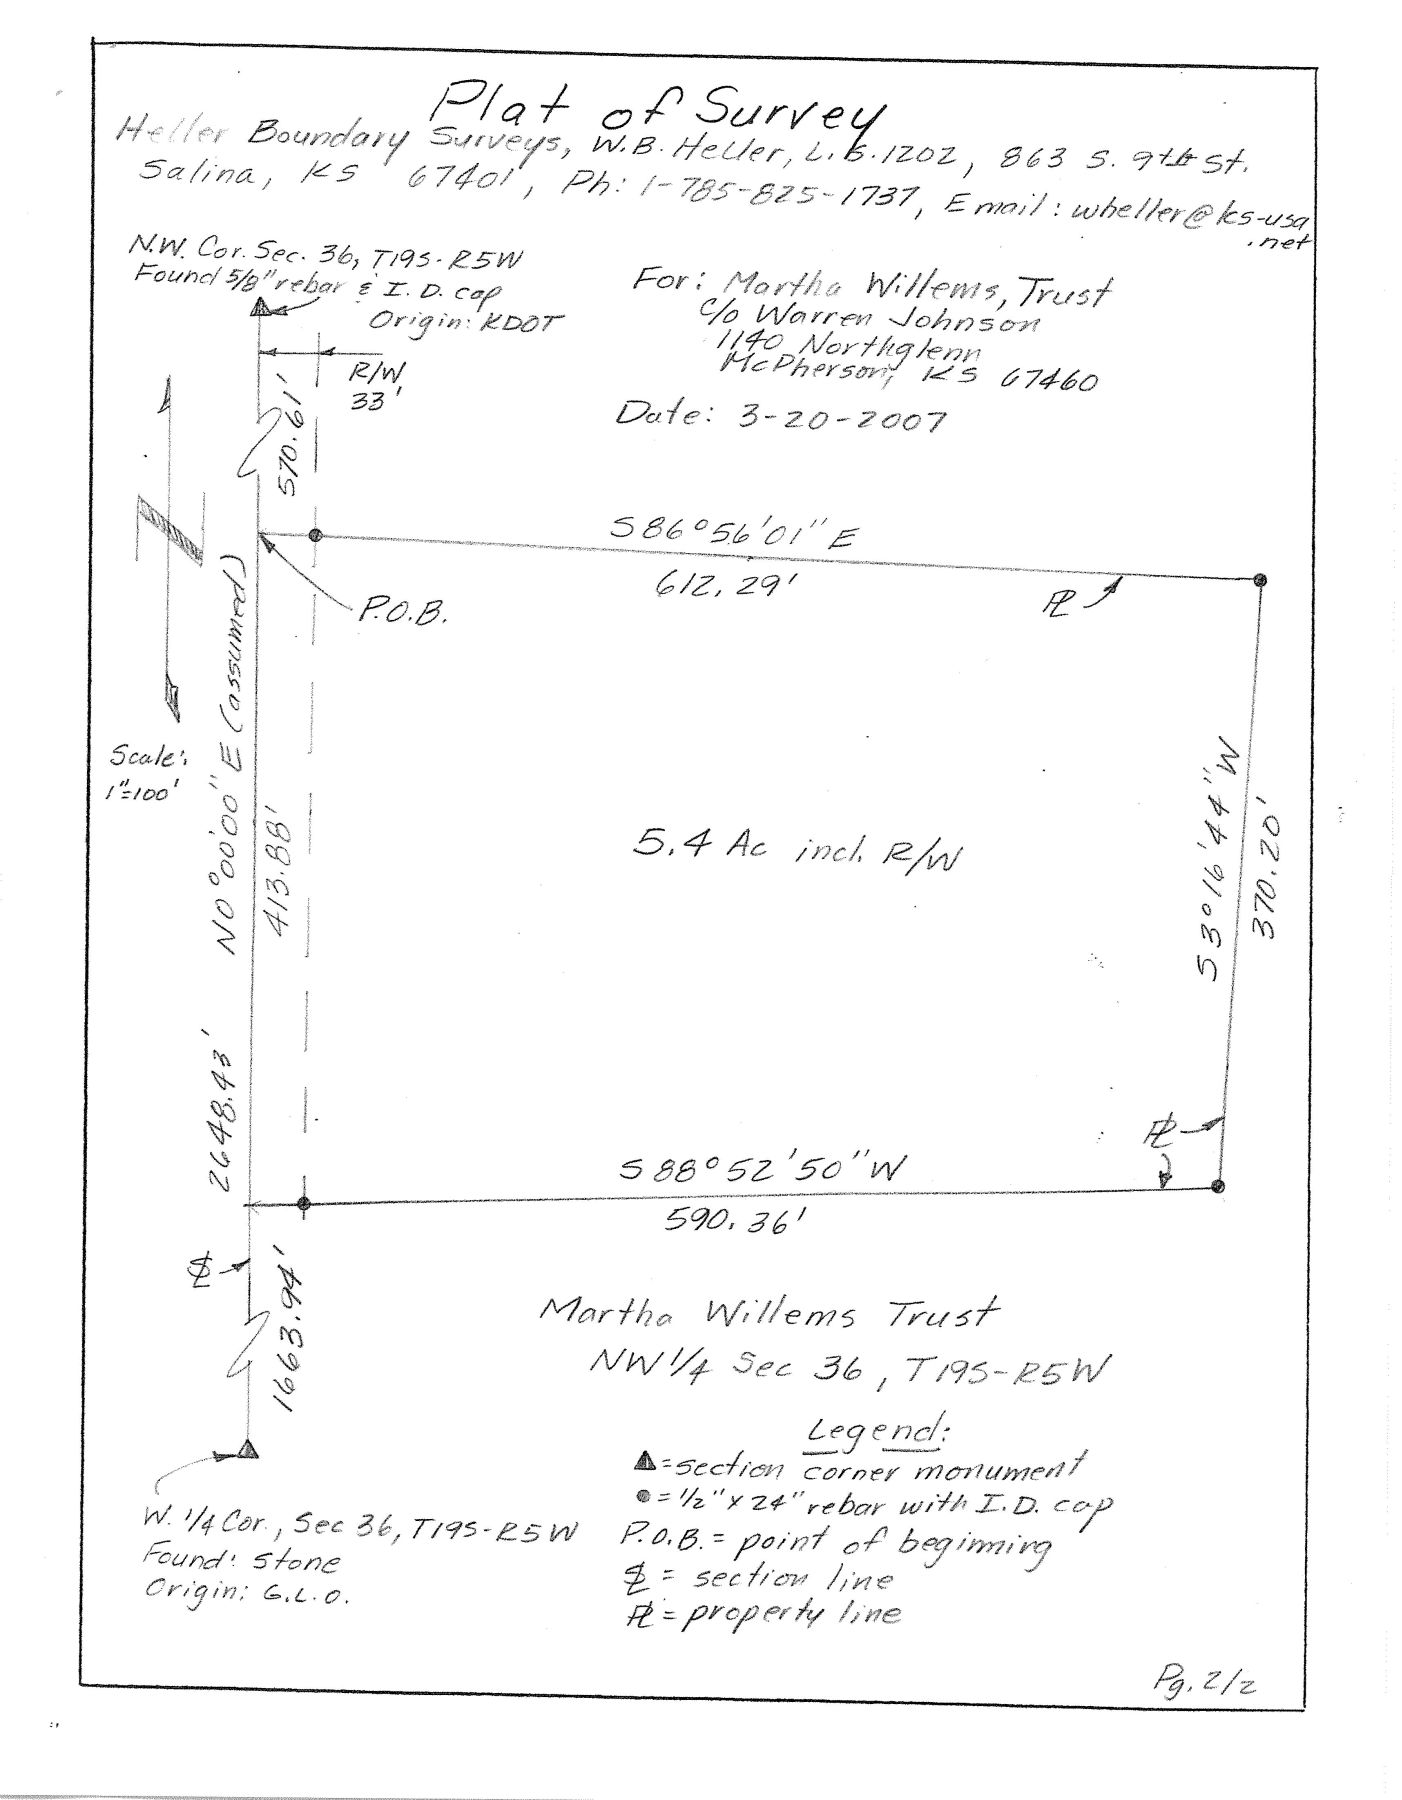 Plat of Survey
Heller Boundary Surveys, W.B. Heller, L.S. 1202, 863 S. 9th St.
Salina, KS 67401, Ph: 1-785-825-1737, Email: wheller@ks-usa
.net
N.W. Cor. Sec. 36, T19S-R5W
Found 5/8" rebar & I.D. cap
Origin: KDOT
For: Martha Willems, Trust
c/o Warren Johnson
1140 Northglenn
McPherson, KS 67460
R/W
33'
Date: 3-20-2007
570.61'
N
S86°56'01"E
612.29'
PL
P.O.B.
Scale:
1"=100'
N0°00'00"E (assumed)
413.88'
2648.43'
5.4 Ac incl. R/W
S3°16'44"W
370.20'
PL
S88°52'50"W
590.36'
SL
1663.94'
Martha Willems Trust
NW 1/4 Sec 36, T19S-R5W
Legend:
▲=section corner monument
●=1/2" x 24" rebar with I.D. cap
P.O.B.= point of beginning
SL = section line
PL = property line
W. 1/4 Cor., Sec 36, T19S-R5W
Found: stone
Origin: G.L.O.
Pg. 2/2